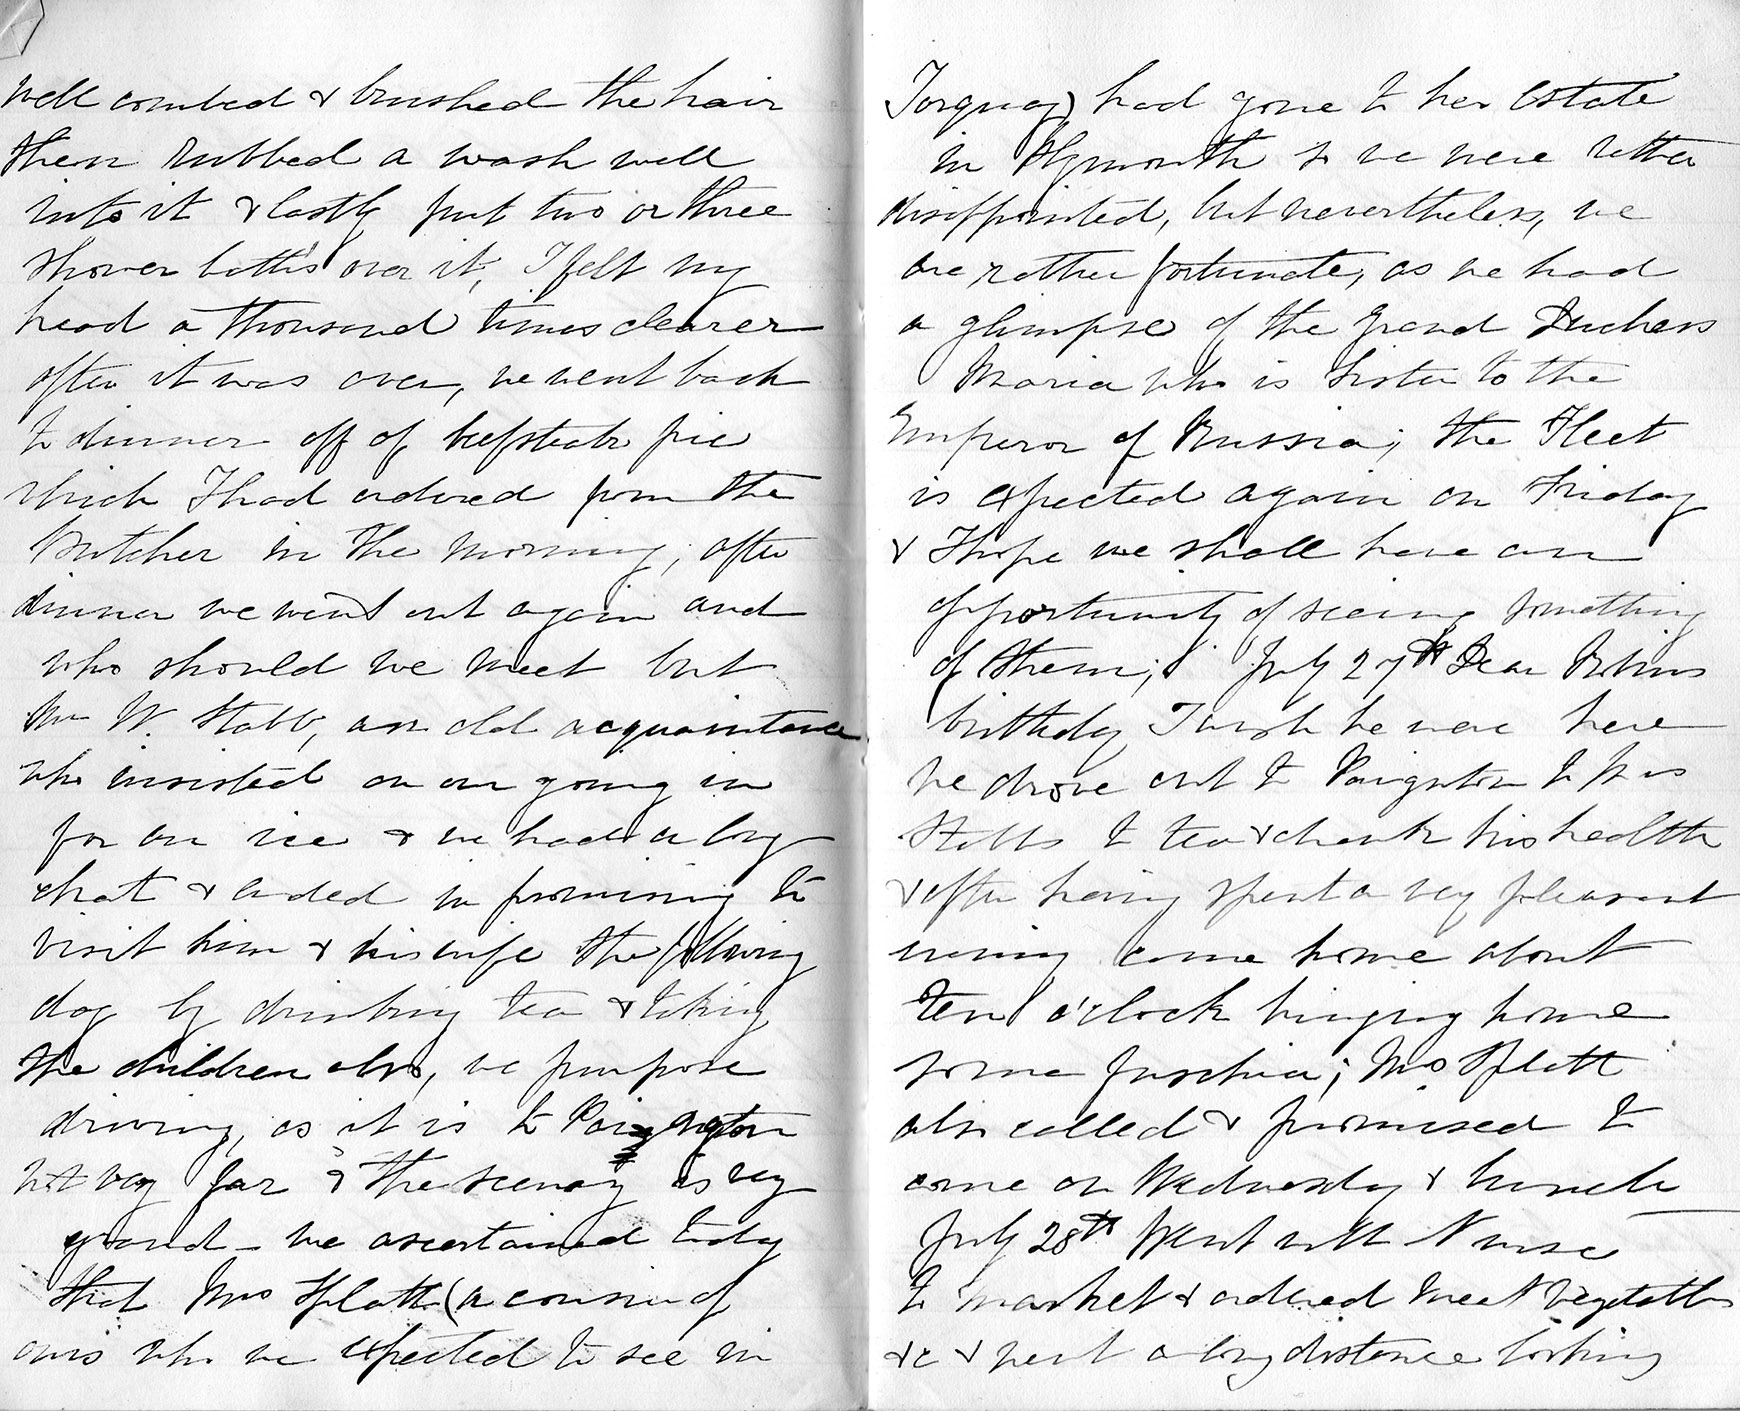 well combed & brushed the hair
then rubbed a wash well
into it & lastly put two or three
shower baths over it, I felt my
head a thousand times clearer
after it was over, we went back
to dinner off of beefsteak pie
which I had ordered from the
Butcher in the morning, after
dinner we went out again and
who should we meet but
Mr W. Stabb, an old acquaintance
who insisted on our going in
for an ice & we had a long
chat & ended in promising to
visit him & his wife the following
day by drinking tea & taking
the children also, we purpose
driving, as it is to Paington
not very far & the scenery is very
grand - we ascertained today
that Mrs Splatt (a cousin of
ours who we expected to see in
Torquay) had gone to her Estate
in Plymouth so we were rather
disappointed, but nevertheless, we
are rather fortunate, as we had
a glimpse of the Grand Duchess
Maria who is Sister to the
Emperor of Russia; the Fleet
is expected again on Friday
& I hope we shall have an
opportunity of seeing something
of them; July 27th Dear
birthday I wish he were here
we drove out to Paignton to
Stabbs to tea & drank his health
& after having spent a very pleasant
evening came home about
ten o'clock bringing home
some fuschia; Mrs Splatt
also called & promised to
come on Wednesday & lunch
July 28th Went with Nurse
to market & ordered meat vegetables
&c & went a long distance looking